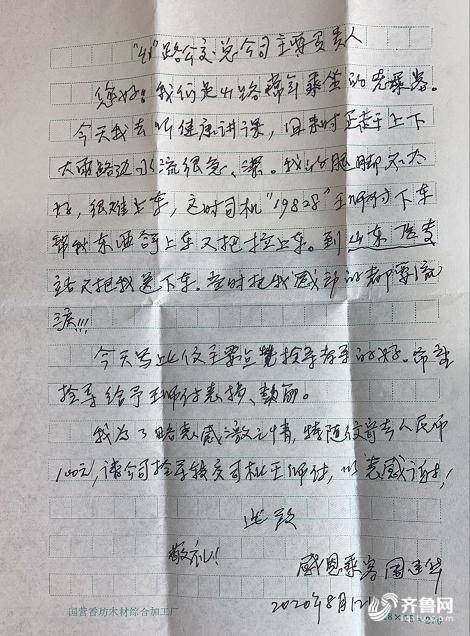 "111"路公交总公司主要负责人
您好！我们是111路常年乘坐的老乘客。
今天我去听健康讲课，回来时正赶上下
大雨路边水流很急、深。我的腿脚不太
好，很难上车，这时司机"19828"王师付下车
帮我东西拿上车又把拉上车。到山东
站又把我送下车。当时把我感动的都要流
泪!!!
今天写上信主要
给予王师付表扬、鼓励。
我为了略表感激之情，特随信寄去人民币
100元，请公司转交司机王师付，以表感谢！
此致
敬礼！
感恩乘客 国
2020年8月12
国营香坊木材综合加工厂
齐鲁网